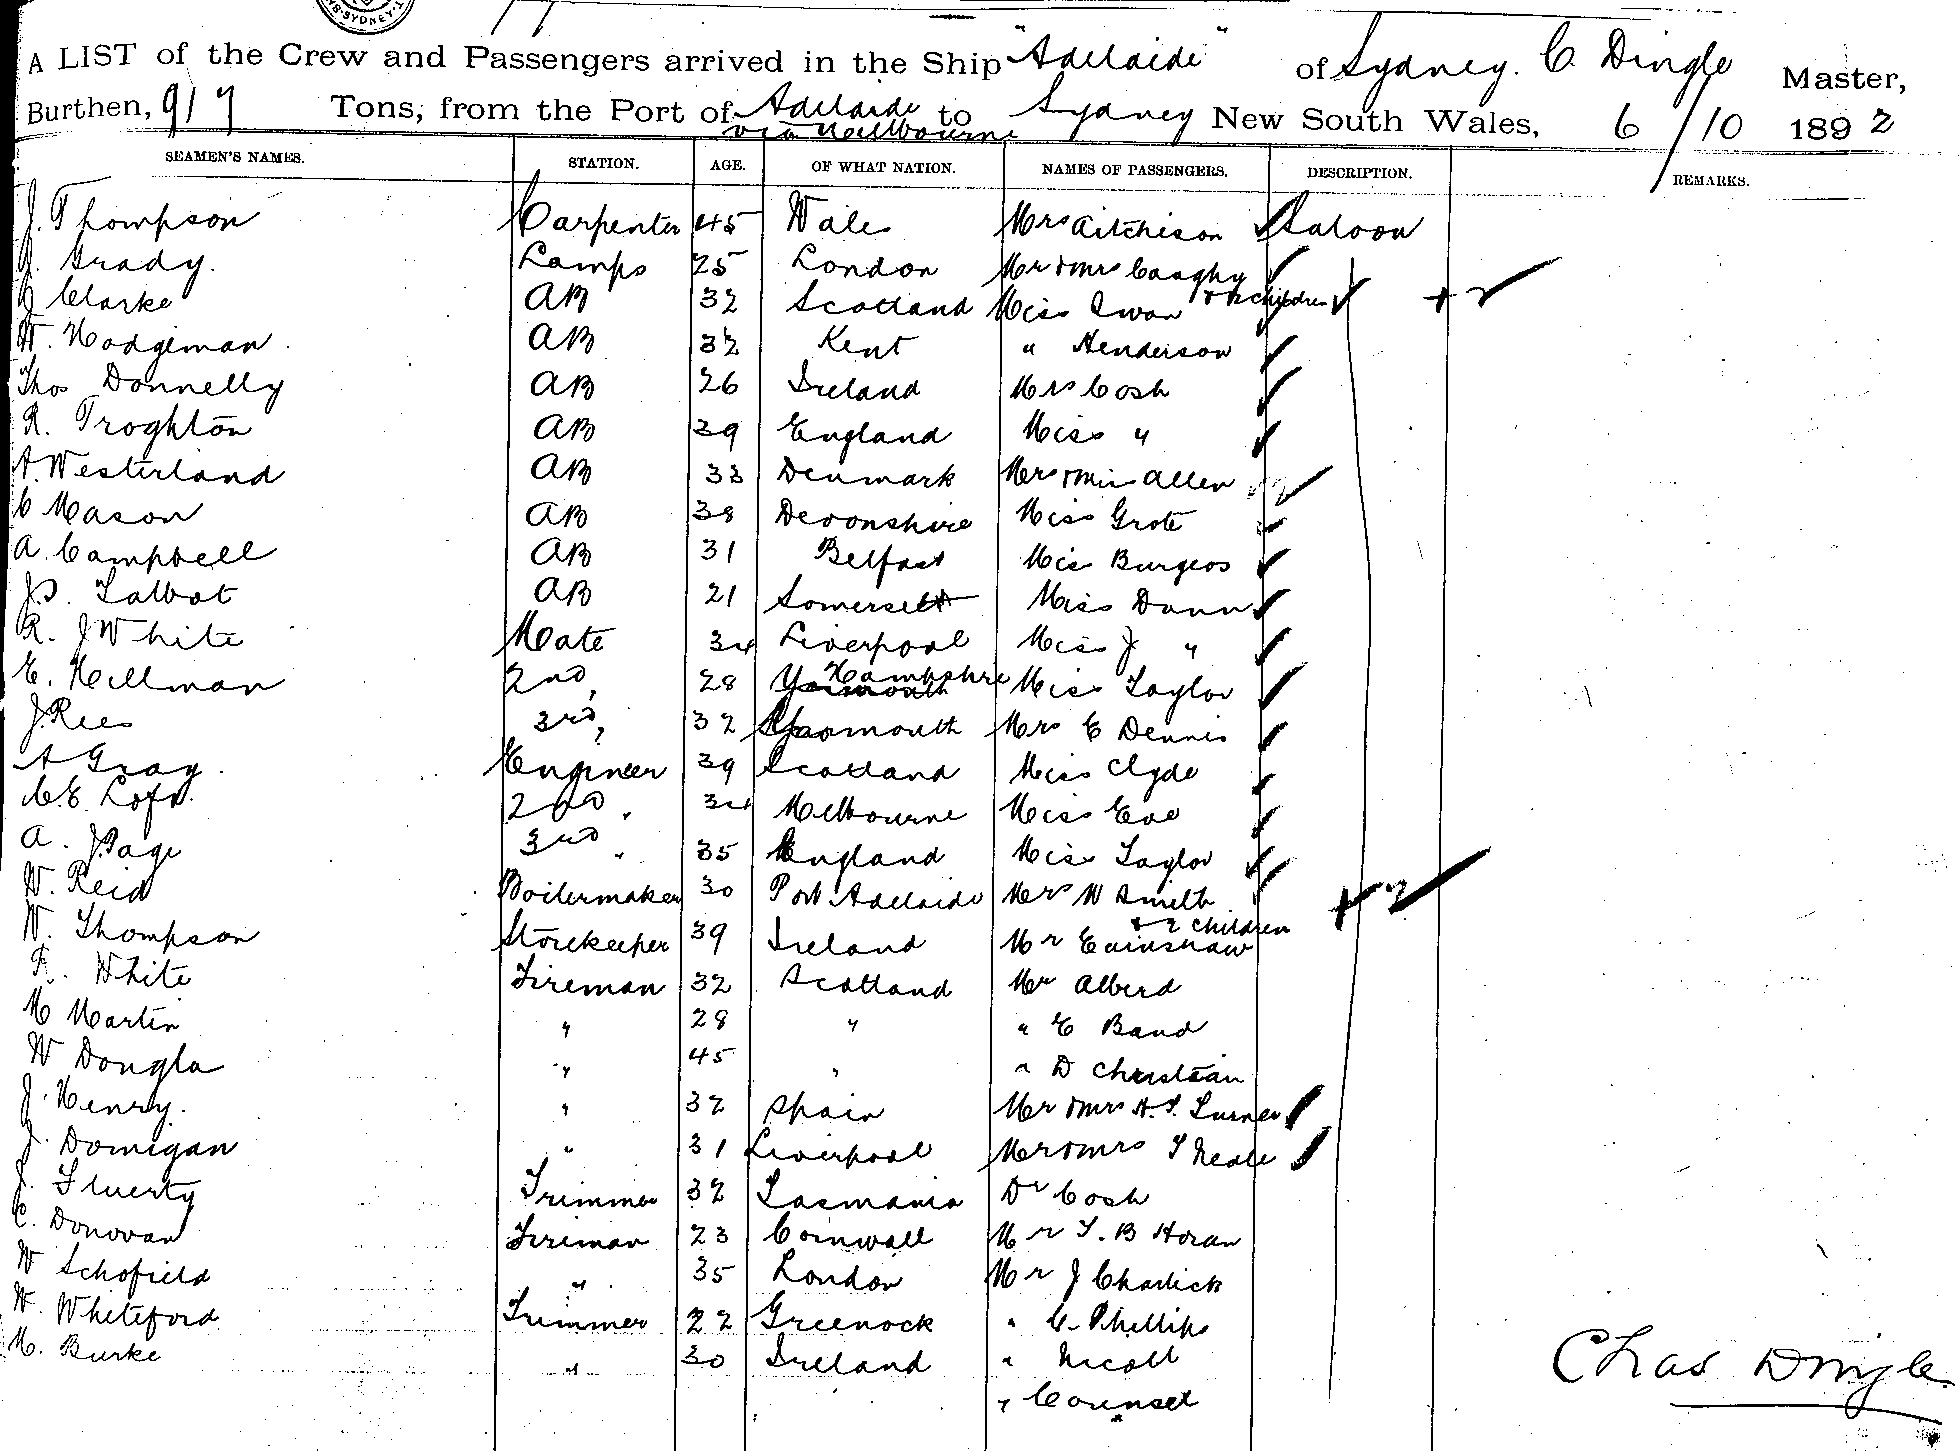 SYDNEY
A LIST of the Crew and Passengers arrived in the Ship "Adelaide" of Sydney. C. Dingle Master,
Burthen, 917 Tons, from the Port of Adelaide to Sydney New South Wales, 6/10 1892
via Melbourne
SEAMEN'S NAMES. STATION. AGE. OF WHAT NATION. NAMES OF PASSENGERS. DESCRIPTION. REMARKS.
J. Thompson Carpenter 45 Wales Mrs Aitchison Saloon
J. Grady. Lamps 25 London Mr & Mrs Caaghy
& 2 children + 2
J Clarke AB 32 Scotland Miss Swan
W. Hodgeman AB 32 Kent " Henderson
Thos Donnelly AB 26 Ireland Mrs Cosh
R. Troghton AB 39 England Miss "
A. Westerland AB 33 Denmark Mr & Miss Allen 2
C Mason AB 38 Devonshire Miss Grote
A. Campbell AB 31 Belfast Miss Burgess
J.D. Talbot AB 21 Somerset Miss Dunn
R. J White Mate 34 Liverpool Miss J "
E. Hillman 2nd, 28 Yarmouth Hampshire Miss Taylor
J. Rees 3rd, 32 Yarmouth Mrs E Dennis
A Gray. Engineer 39 Scotland Miss Clyde
C.E. Loft. 2nd " 34 Melbourne Miss Eve
A. J Page 3rd " 35 England Miss Taylor
W. Reid Boilermaker 30 Port Adelaide Mrs W Smith + 2
& 2 children
W. Thompson Storekeeper 39 Ireland Mr Earnshaw
R. White Fireman 32 Scotland Mr Alberd
M Martin " 28 " " E Band
W Dougla " 45 " " D Christian
J. Henry. " 32 Spain Mr & Mrs H. S. Turner
J. Domigan " 31 Liverpool Mr & Mrs T Neale
J. Fluerty Trimmer 32 Tasmania Dr Cosh
C. Donovan Fireman 23 Cornwall Mr T. B Horan
W Schofield " 35 London Mr J Charlick
W. Whiteford Trimmer 22 Greenock " C. Phillips
M. Burke " 30 Ireland " Nicoll
" Counsel
Chas Dingle